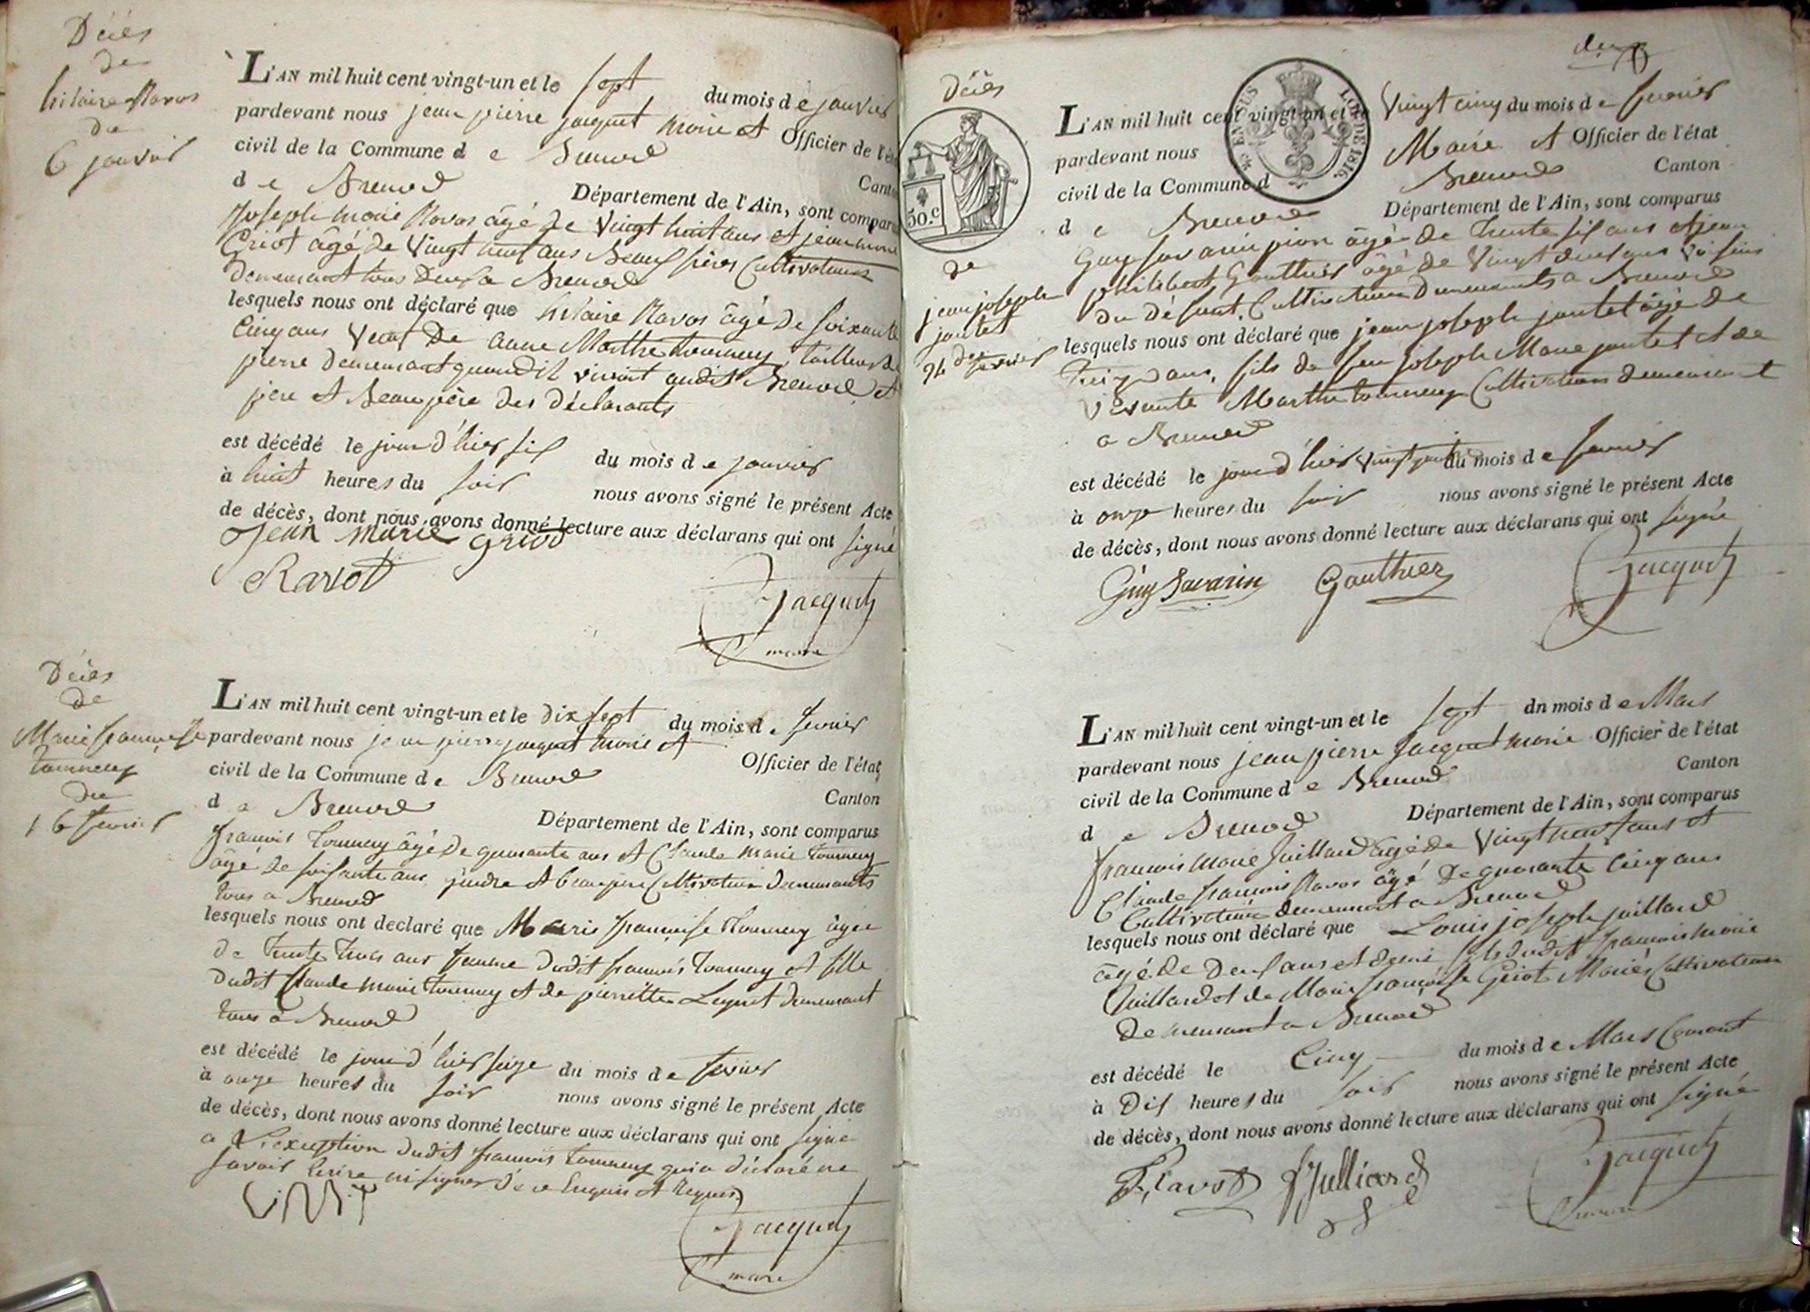 Décès
de
hilaire Ravos
du
6 janvier
L'AN mil huit cent vingt-un et le sept du mois de janvier
pardevant nous jean pierre jacquet maire et Officier de l'ét
civil de la Commune de Brenod
de Brenod Canto
Département de l'Ain, sont compar
joseph marie Ravos âgé de Vingt huit ans et jean marie
Griot âgé de Vingt huit ans Beaux frères Cultivateurs
demeurant tous Deux a Brenod
lesquels nous ont déclaré que hilaire Ravos âgé de soixante
Cinq ans Veuf de anne Marthe tournery tailleur de
pierre demeurant quand il vivoit audit Brenod et
père et Beau père des déclarants
est décédé le jour d'hier six du mois de janvier
à huit heures du soir nous avons signé le présent Acte
de décès, dont nous avons donné lecture aux déclarans qui ont signé
Jean Marie Griod
Ravot
Jacquet
maire
Décès
de
Marie françoise
tournery
du
16 fevrier
L'AN mil huit cent vingt-un et le dix sept du mois de fevrier
pardevant nous jean pierre jacquet maire et Officier de l'état
civil de la Commune de Brenod
de Brenod Canton
Département de l'Ain, sont comparus
françois tournery âgé de quarante ans et Claude marie tournery
âgé de soixante ans gendre et beau père Cultivateurs demeurants
tous a Brenod
lesquels nous ont déclaré que Marie françoise tournery âgée
de trente trois ans femme dudit françois tournery et fille
dudit Claude marie tournery et de pierrette demeurant
tous a Brenod
est décédé le jour d'hier seize du mois de fevrier
à onze heures du soir nous avons signé le présent Acte
de décès, dont nous avons donné lecture aux déclarans qui ont signé
a L'exception dudit françois tournery qui a déclaré ne
savoir Ecrire ni signer de ce Enquis et Requis
Jacquet
maire
Décès
de
jean joseph
jantet
24 fevrier
50.c
EN SUS
LOI DE 1816.
L'AN mil huit cent vingt-un et le Vingt cinq du mois de fevrier
pardevant nous Maire et Officier de l'état
civil de la Commune d Brenod Canton
de Brenod Département de l'Ain, sont comparus
Guy savarin pion âgé de trente six ans et jean
philibert Gauthier âgé de Vingt deux ans Voisins
du défunt, Cultivateurs demeurants a Brenod
lesquels nous ont déclaré que jean joseph jantet âgé de
ans, fils de feu joseph Marie jantet et de
Vivante Marthe tournery Cultivateurs demeurant
a Brenod
est décédé le jour d'hier vingt quatre du mois de fevrier
à onze heures du soir nous avons signé le présent Acte
de décès, dont nous avons donné lecture aux déclarans qui ont signé
Guy Savarin Gauthier Jacquet
L'AN mil huit cent vingt-un et le sept du mois de Mars
pardevant nous jean pierre Jacquet maire Officier de l'état
civil de la Commune de Brenod Canton
de Brenod Département de l'Ain, sont comparus
françois marie Juilliard âgé de Vingt neuf ans et
Claude françois Ravos âgé de quarante cinq ans
Cultivateurs demeurant a Brenod
lesquels nous ont déclaré que Louis joseph juilliard
âgé de Deux ans et demi fils dudit françois marie
Juilliard et de Marie françoise Griot Mariés Cultivateurs
demeurant a Brenod
est décédé le Cinq du mois de Mars Courant
à Dix heures du soir nous avons signé le présent Acte
de décès, dont nous avons donné lecture aux déclarans qui ont signé
Ravot Julliard Jacquet
maire